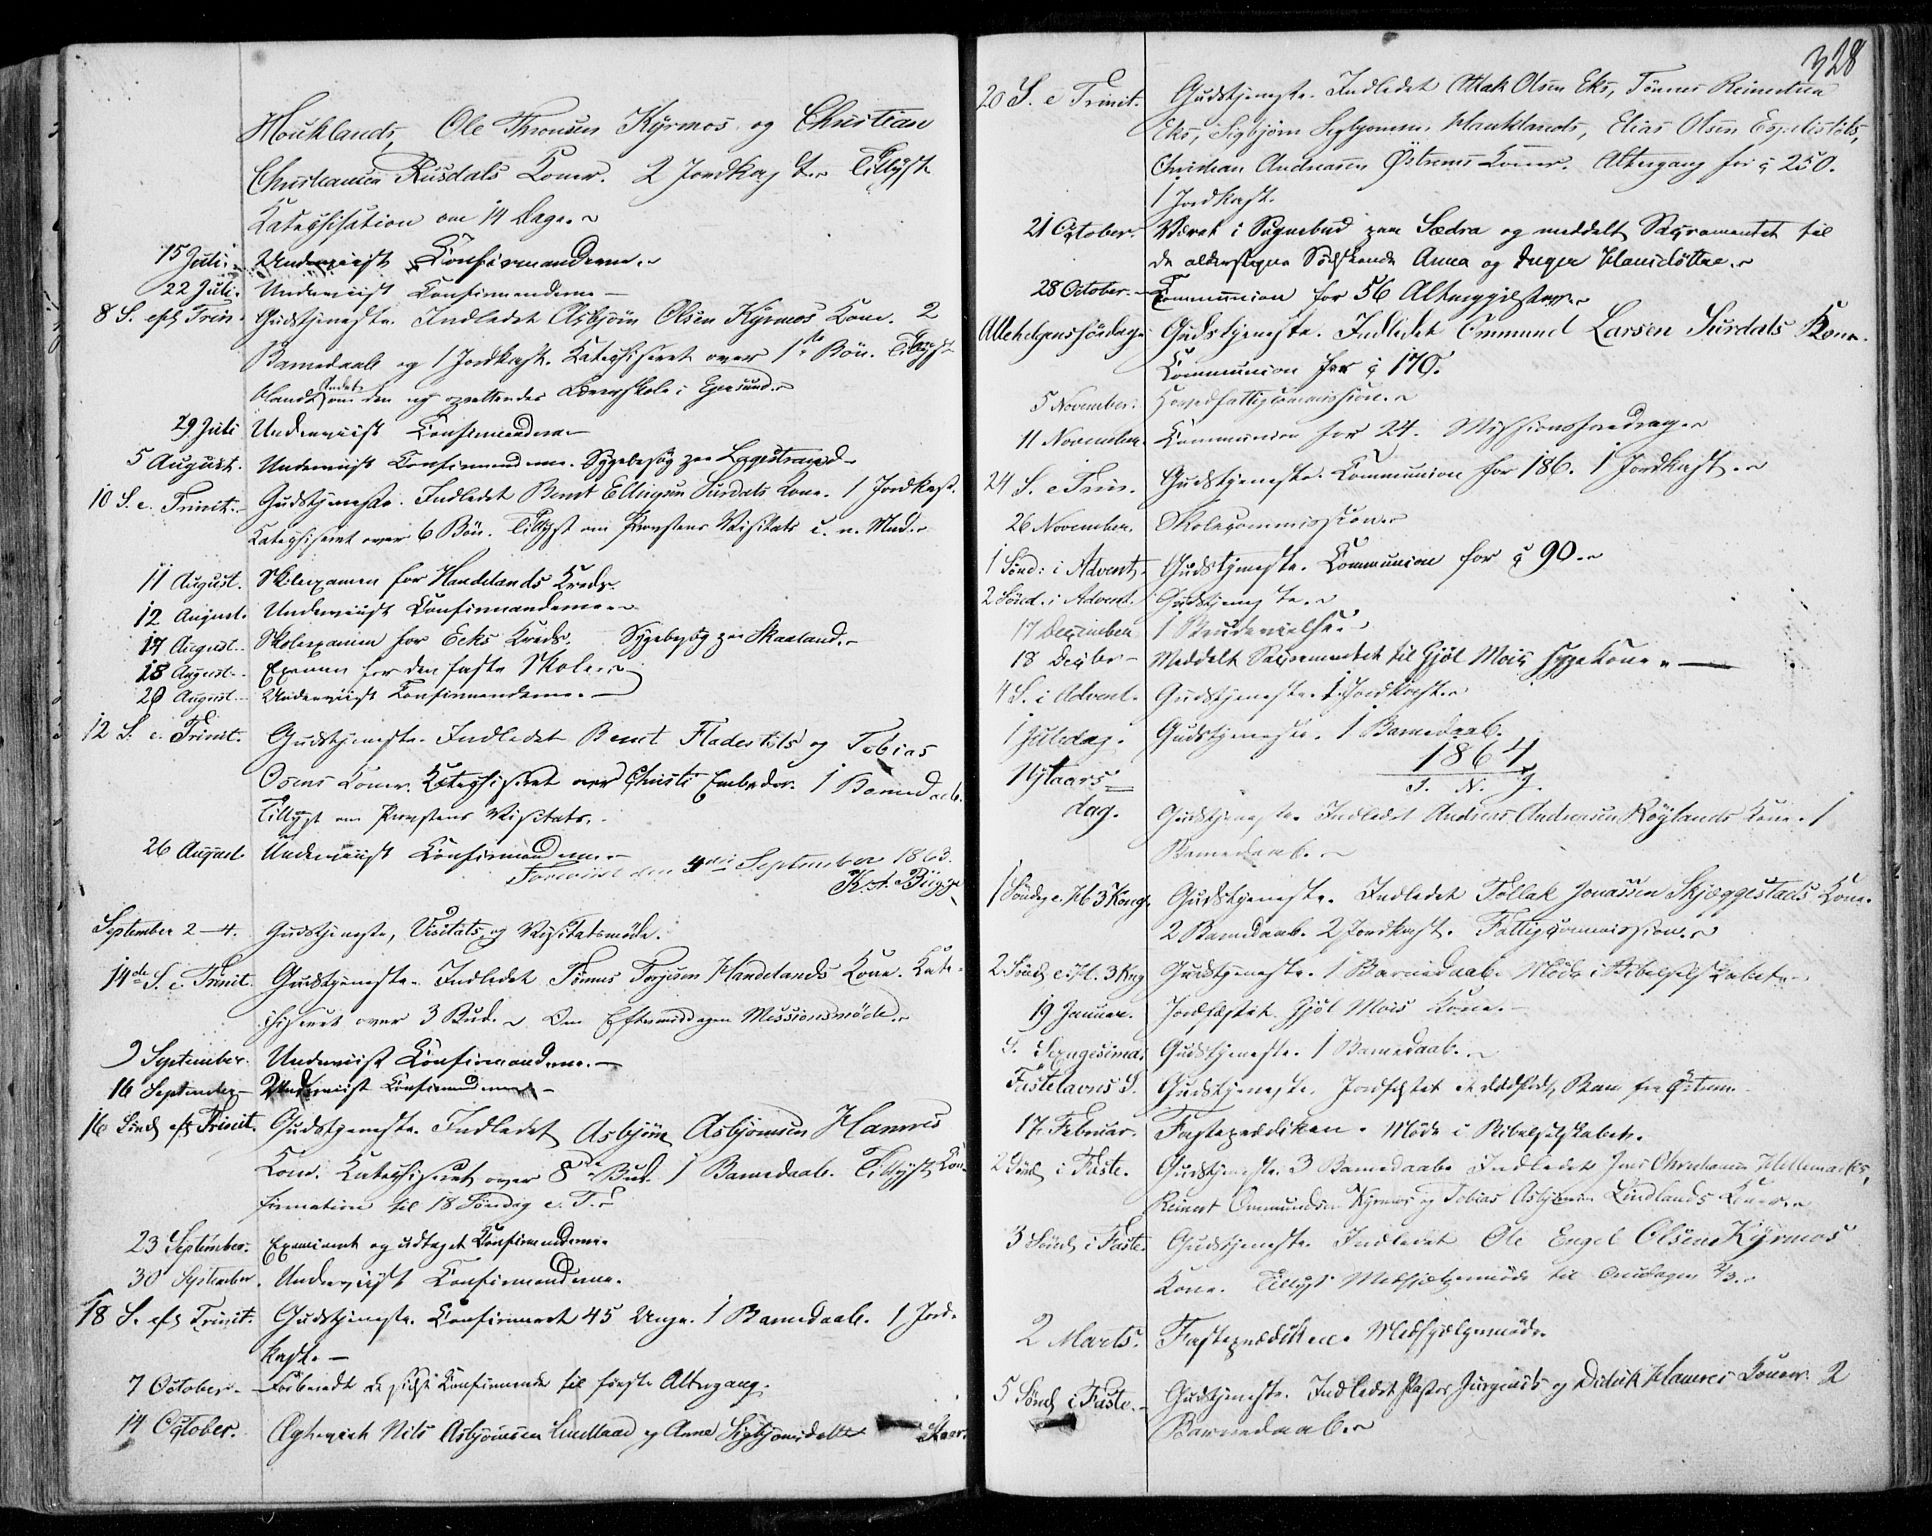 Houklands, Ole Thronsen Kyrmos og Christian
Christiansen Rusdals Koner. 2 Jordkast. Tillyst
Katechisation om 14 Dage.
15 Juli. Underviist Konfirmanderne.
22 Juli. Underviist Confirmanderne
8 S. eft Trin. Gudstjeneste. Indledet Asbjörn Olsen Kyrmos Kone. 2
Barnedaab og 1 Jordkast. Katechiseret over 1ste Bön. Tillyst
om den ny oprettendes Lærerskole i Egersund.
29 Juli Underviist Confirmanderne
5 August. Underviist Confirmanderne. Sygebesög paa Lagestrand
10 S. e. Trinit. Gudstjeneste. Indledet Bernt Ellingsen Surdals Kone. 1 Jordkast.
Katechiseret over 6 Bön. Tillyst om Provstens Visitats
11 August. Skoleexamen for Handelands Kreds.
12 August. Underviist Confirmanderne
17 August. Skoleexamen for Eeks Kreds. Sygebesög paa Skaaland.
18 August. Examen for den faste Skole.
20 August. Underviist Confirmanderne.
12 S. e. Trinit. Gudstjeneste. Indledet Bernt Fladestöls og Tobias
Osens Koner. Katechiseret over Christi Embeder. 1 Barnedaab.
Tillyst om Provstens Visitats.
26 August Underviist Confirmanderne
Foreviist den 4de September 1863.
K. A. Bugge
September 2-4. Gudstjeneste, Visitats og Visitatsmöde.
14de S. e. Trinit. Gudstjeneste. Indledet Tönnes Torjesen Handelands Kone. Kate-
chiseret over 3 Bud. Om Eftermiddagen Missionsmöde.
9 September. Underviist Konfirmanderne.
16 September Underviist Confirmanderne
16 Sönd eft Trinit. Gudstjeneste. Indledet Asbjörn Asbjörnsen Hamres
Kone. Katechiseret over 8de Bud. 1 Barnedaab. Tillyst Kon-
firmation til 18 Söndag e. T.
23 September. Examineret og udtaget Confirmanderne.
30 September. Underviist Confirmanderne.
18 S. eft Trinit. Gudstjeneste. Confirmeret 45 Unge. 1 Barnedaab. 1 Jord-
kast.
7 October. Forberedt de sidst Confirmerede til förste Altergang.
14 October. Ægteviet Nils Asbjörnsen Lindland og Anne Sigbjörnsdatter
328
20 S. e Trinit. Gudstjeneste. Indledet Attak Olsen Eks, Tönnes Reinertsen
Eks, Sigbjörn Sigbjörnsen Hauklands, Elias Olsen Espetstöls,
Christian Andreasen Östrems Koner. Altergang for 250.
1 Jordkast.
21 October. Været i Sognebud paa Sædra og meddelt Sacramentet til
de alderstegne Södskende Anna og Inger Hansdöttre.
28 October. Communion for 56 Altergjæster.
Allehelgensfösdag. Gudstjeneste. Indledet Ommund Larsen Surdals Kone.
Communion for 170.
5 November. Hovedfattigcommission.
11 November. Communion for 24. Missionsforedrag.
24 S. e Trin. Gudstjeneste. Communion for 186. 1 Jordkast.
26 November. Skolecommission.
1 Sönd: i Advent. Gudstjeneste. Communion for 90.
2 Sönd. i Advent. Gudstjeneste.
17 December 1 Brudevielse.
18 Decbr Meddelt Sacramentet til Gjöl Mois syge Kone.
4 S. i Advent. Gudstjeneste. 1 Jordkast.
1 Juledag. Gudstjeneste. 1 Barnedaab.
1864
I. N. J.
Nytaars-
dag. Gudstjeneste. Indledet Andreas Andreasen Röylands Kone. 1
Barnedaab.
1 Söndag e. H 3 Kong. Gudstjeneste. Indledet Tollak Jonassen Skjæggestads Kone.
2 Barnedaab. 2 Jordkast. Fattigcommission.
2 Sönd e. H. 3 Kong Gudstjeneste. 1 Barnedaab. Möde i Bibelselskabet.
19 Januar. Jordfæstet Gjöl Mois Kone.
S. Sexagesima. Gudstjeneste. 1 Barnedaab.
Fastelavns S. Gudstjeneste. Jordfæstet et dödföd Barn fra Östrem
17. Februar. Fasteprædiken. Möde i Bibelselskabet.
2 Sönd i Faste. Gudstjeneste. 3 Barnedaab. Indledet Jens Christiansen Hellemarks,
Reinert Ommundsen Kyrmos og Tobias Asbjörnsen Lindlands Koner.
3 Sönd i Faste. Gudstjeneste. Indledet Ole Engel Olsens Kyrmos
Kone. Tillyst Medhjælpermöde til Onsdagen 2/3.
2 Marts. Fasteprædiken. Medhjælpermöde.
5 Sönd i Faste. Gudstjeneste. Indledet Pastor Jürgens og Didrik Hamres Koner. 2
Barnedaab.